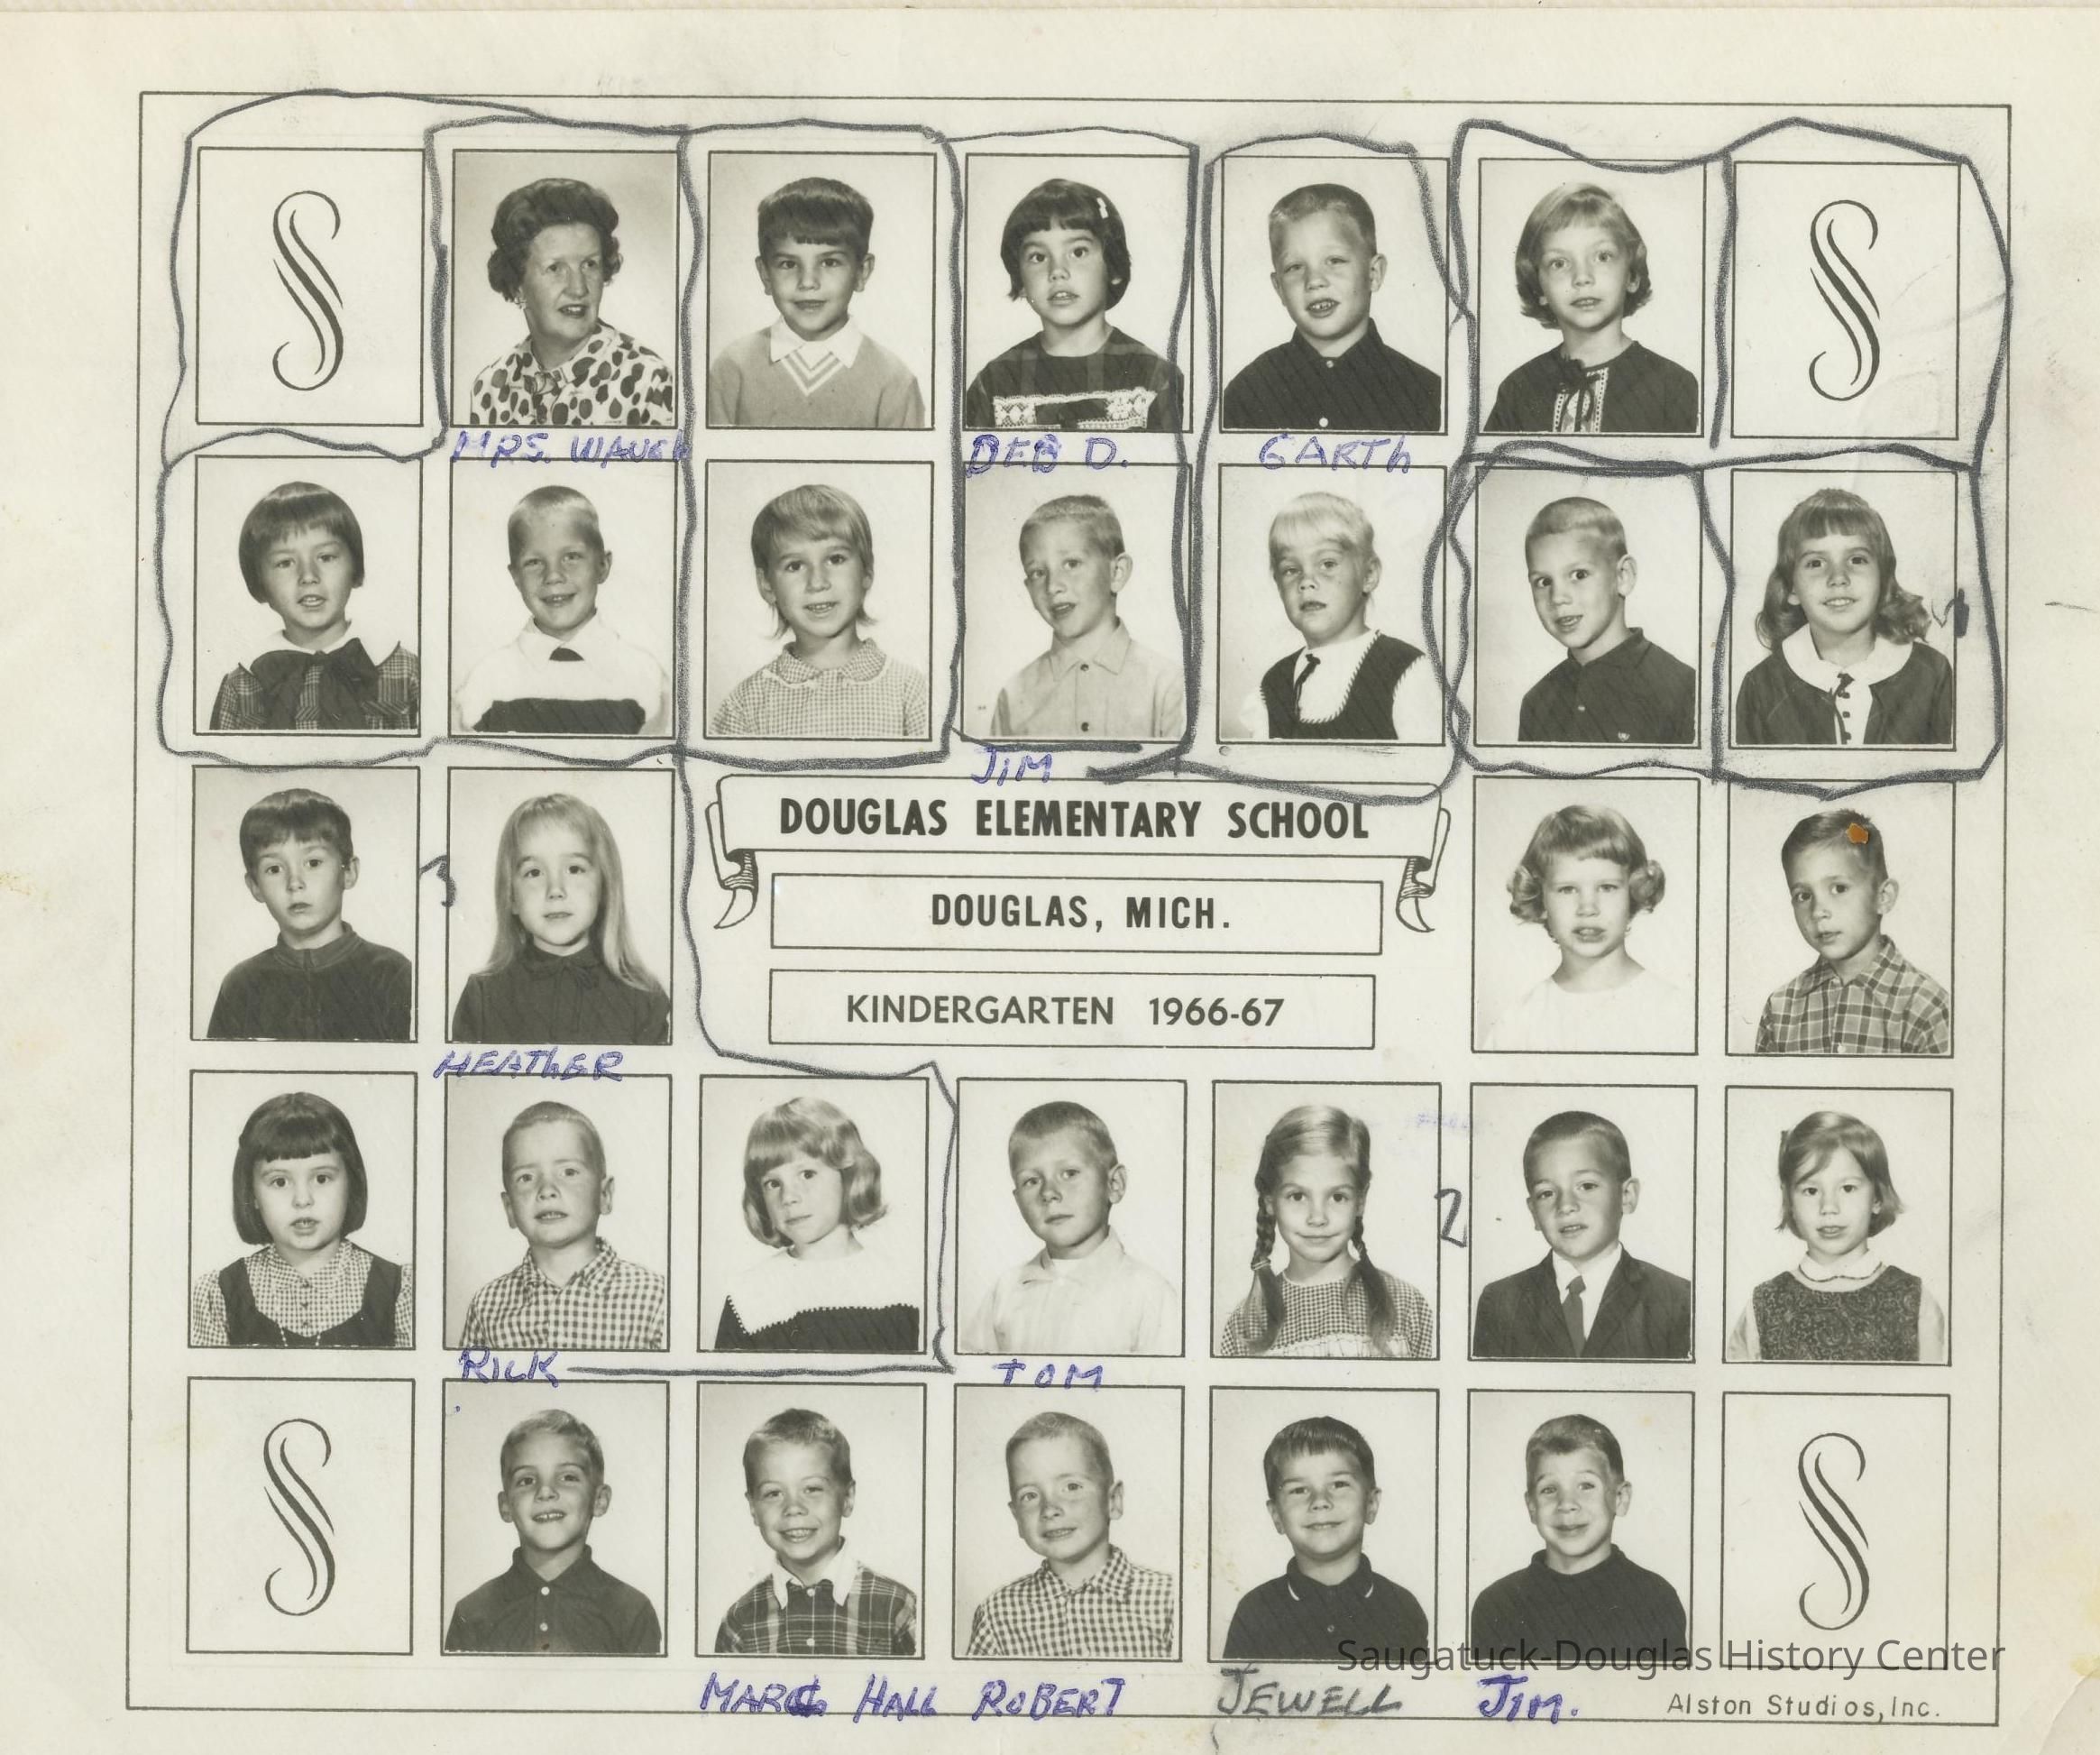 MRS. WAUGH
DEB D.
GARTh
JiM
DOUGLAS ELEMENTARY SCHOOL
DOUGLAS, MICH.
KINDERGARTEN 1966-67
3
HEAThER
2
RICK
TOM
MARC HALL ROBERT JEWELL JIM.
Saugatuck-Douglas History Center
Alston Studios, Inc.